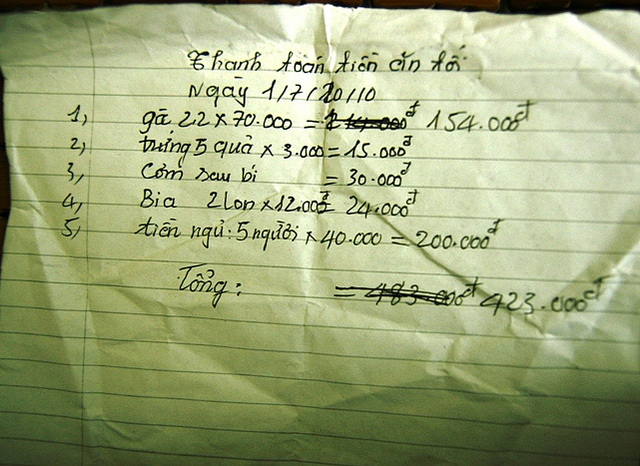 Thanh toán tiền ăn tối
Ngày 1/7/2010
1, gà 2.2 × 70.000 = 154.000đ
2, trứng 5 quả × 3.000 = 15.000đ
3, Cơm rau bí = 30.000đ
4, Bia 2 lon × 12.000đ = 24.000đ
5, tiền ngủ: 5 người × 40.000 = 200.000đ
Tổng: = 483.000đ 423.000đ